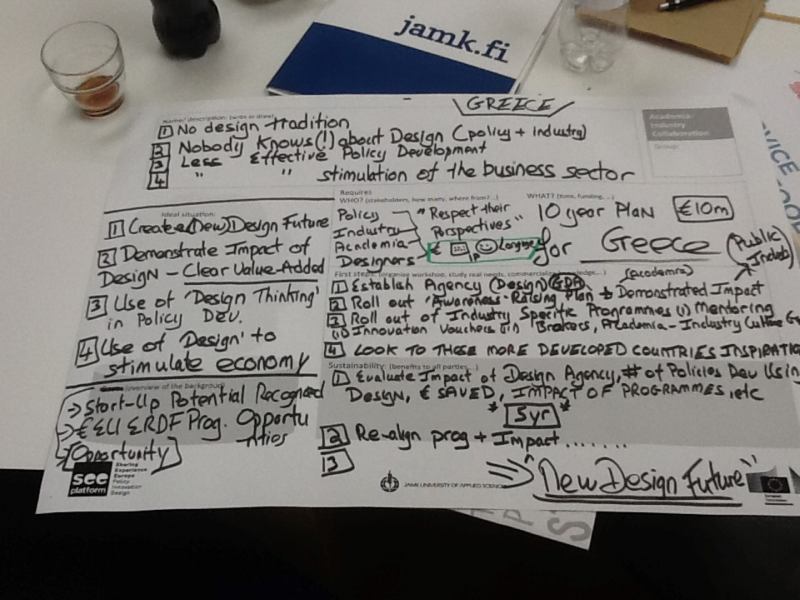 jamk.fi
GREECE
Name/ description: (write or draw)
1 No design tradition
2 Nobody Knows(!) about Design (policy + industry)
3 Less Effective Policy Development
4 " " stimulation of the business sector
Academia-
Industry
Collaboration
Group:
Ideal situation:
1 Create a (New) Design Future
2 Demonstrate Impact of
Design - Clear Value-Added
3 Use of 'Design Thinking'
in Policy Dev.
4 Use of 'Design' to
stimulate economy
(overview of the background)
→ Start-Up Potential Recognized
→ € EU ERDF Prog. Opportu
nities
[Opportunity]
Requires
WHO? (stakeholders, how many, where from?...)
Policy
Industry
Academia
Designers
"Respect their
Perspectives"
€ IP Language
WHAT? (time, funding,...)
10 year PLAN €10m
for Greece (Public/
Indus)
First steps:
1 Establish Agency (Design) GDA (academia)
2 Roll out 'Awareness-Raising Plan + Demonstrated Impact
3 Roll out of Industry Specific Programmes (i) Mentoring
(ii) Innovation Vouchers Brokers, Academia-Industry Culture
4 LOOK TO THESE MORE DEVELOPED COUNTRIES INSPIRATI
Sustainability: (benefits to all parties...)
1 Evaluate Impact of Design Agency, # of Policies Dev Usin
Design, € SAVED, IMPACT OF PROGRAMMES, etc
* 5yr *
2 Re-align prog + Impact.......
3
⇒ "New Design Future"
see
platform
Sharing
Experience
Europe
Policy
Innovation
Design
JAMK UNIVERSITY OF APPLIED SCIENCES
European
Commission